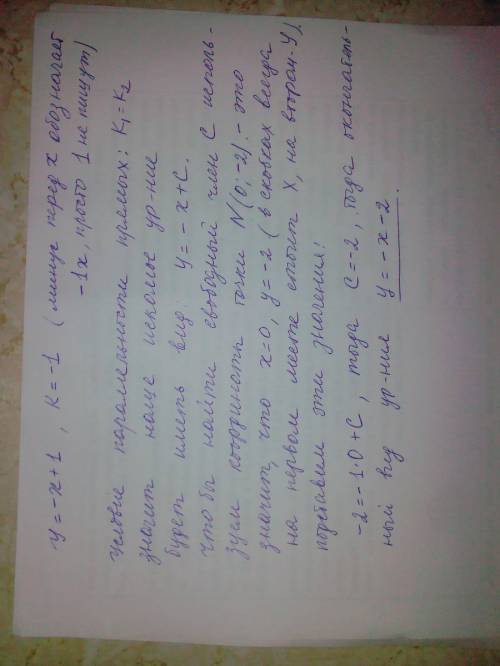 y = -x + 1 , K = -1 ( минус перед x обозначает
-1x, просто 1 не пишут)
Условие параллельности прямых: K₁ = K₂
значит наше искомое ур-ние
будет иметь вид: y = -x + C.
что бы найти свободный член C исполь-
зуем координаты точки N(0; -2) - это
значит, что x=0, y=-2 ( в скобках всегда
на первом месте стоит X, на втором - У).
подставим эти значения:
-2 = -1·0 + C , тогда C = -2, тогда окончатель-
ный вид ур-ния y = -x - 2 .